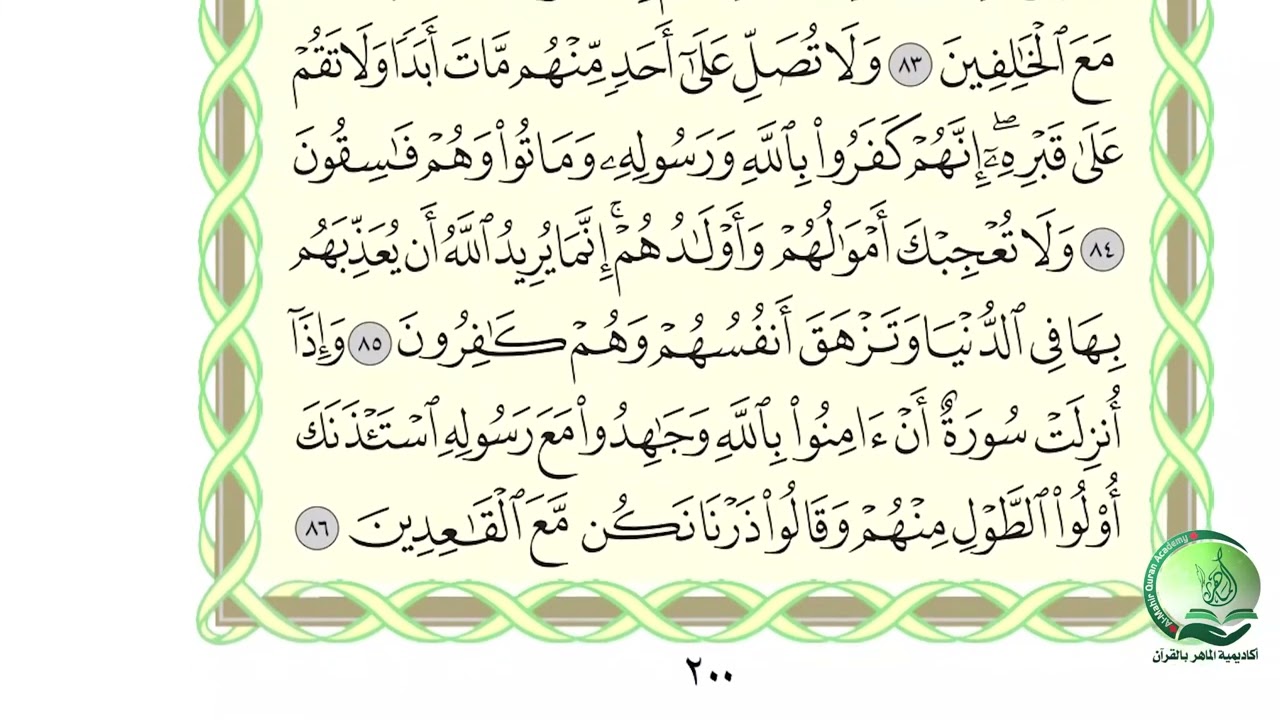 مَعَ ٱلْخَٰلِفِينَ ٨٣ وَلَا تُصَلِّ عَلَىٰٓ أَحَدٍ مِّنْهُم مَّاتَ أَبَدًا وَلَا تَقُمْ
عَلَىٰ قَبْرِهِۦٓۖ إِنَّهُمْ كَفَرُوا۟ بِٱللَّهِ وَرَسُولِهِۦ وَمَاتُوا۟ وَهُمْ فَٰسِقُونَ
٨٤ وَلَا تُعْجِبْكَ أَمْوَٰلُهُمْ وَأَوْلَٰدُهُمْۚ إِنَّمَا يُرِيدُ ٱللَّهُ أَن يُعَذِّبَهُم
بِهَا فِى ٱلدُّنْيَا وَتَزْهَقَ أَنفُسُهُمْ وَهُمْ كَٰفِرُونَ ٨٥ وَإِذَآ
أُنزِلَتْ سُورَةٌ أَنْ ءَامِنُوا۟ بِٱللَّهِ وَجَٰهِدُوا۟ مَعَ رَسُولِهِ ٱسْتَـْٔذَنَكَ
أُو۟لُوا۟ ٱلطَّوْلِ مِنْهُمْ وَقَالُوا۟ ذَرْنَا نَكُن مَّعَ ٱلْقَٰعِدِينَ ٨٦
٢٠٠
Al-Mahir Quran Academy
الماهر
أكاديمية الماهر بالقرآن